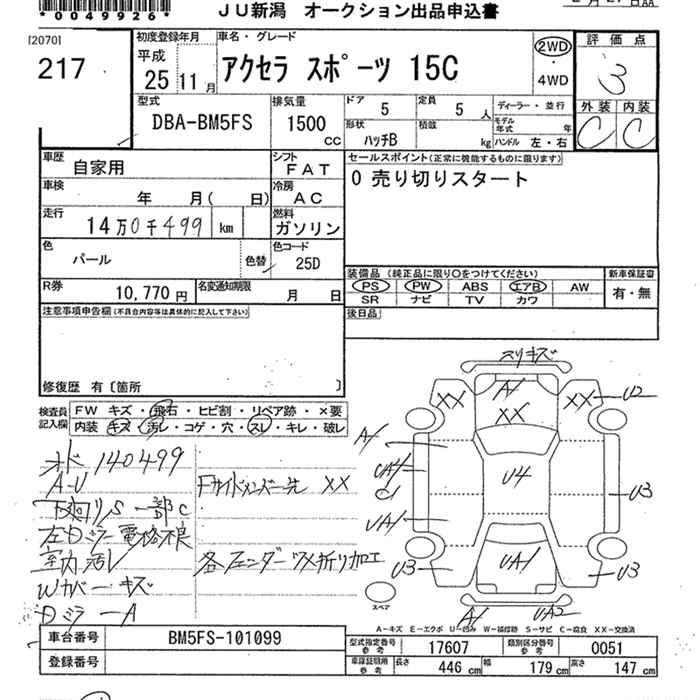 *0049926*
JU新潟 オークション出品申込書
[2070]
217
初度登録年月
平成
25 11月
車名・グレード
アクセラ スポーツ 15C
2WD
4WD
評価点
3
外装 内装
C C
型式
DBA-BM5FS
排気量
1500
CC
ドア
5
定員
5 人
形状
ハッチB
積載
kg
ディーラー・並行
モデル年式 年
ハンドル 左・右
車歴
自家用
シフト
FAT
車検
年 月( 日)
冷房
AC
走行
14万0千499 km
燃料
ガソリン
色
パール
色替
色コード
25D
R券
10,770円
名変通知期限
月 日
セールスポイント(正常に機能するものに限ります)
0 売り切りスタート
装備品(純正品に限り○をつけてください)
PS PW ABS エアB AW
SR ナビ TV カワ
新車保証書
有・無
後日品
注意事項申告欄(不具合内容等は具体的に記入して下さい)
修復歴 有〔箇所 〕
検査員記入欄
FW キズ・飛石・ヒビ割・リペア跡・×要
内装 キズ・汚レ・コゲ・穴・スレ・キレ・破レ
オド 140499
A-U
下廻りS 一部C
左Dミラー電格不良
室内汚レ
Wカバーキズ
Dミラー A
Fサイドメンバー先 XX
各フェンダーツメ折り加工
スリキズ
A1
XX
XX
XX
U2
A1
UA1
UA1
U3
U4
UA1
U3
U3
A1
UA2
スペア
A-キズ E-エクボ U-凹み W-補修跡 S-サビ C-腐食 XX-交換済
車台番号
BM5FS-101099
登録番号
型式指定番号 参考
17607
類別区分番号 参考
0051
車庫証明用 参考
長さ 446 cm
幅 179 cm
高さ 147 cm